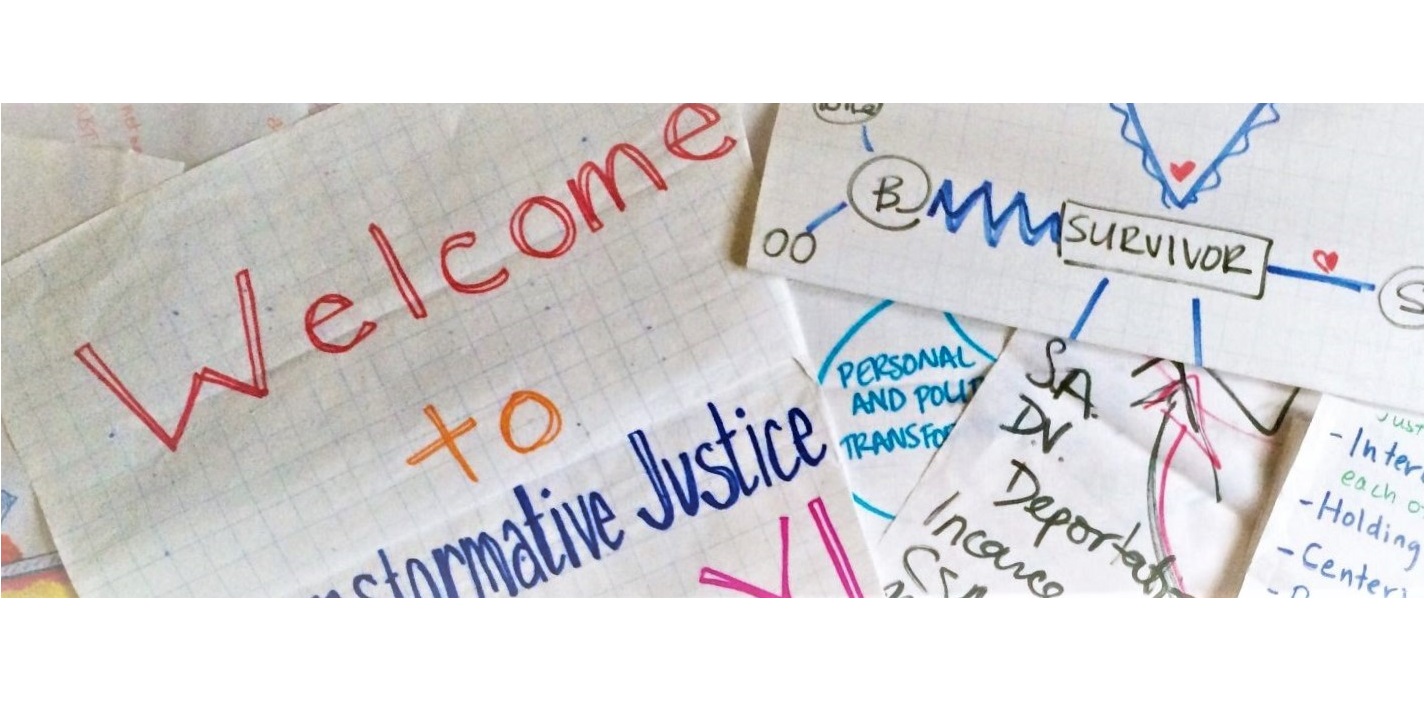 Welcome
to
nsformative Justice
B
SURVIVOR
OO
S
PERSONAL
AND POLI
TRANSFO
S.A.
D.V.
Deportat
Incarce
CSA
Just
- Inter
each o
- Holding
- Centeri